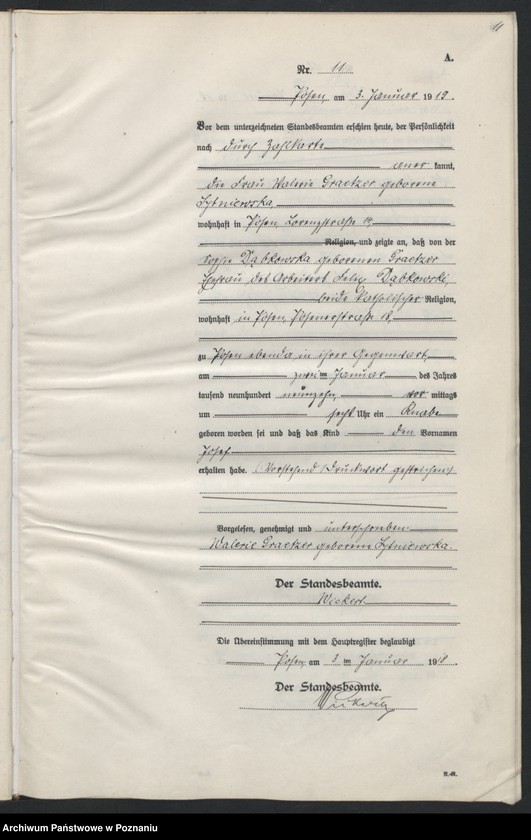 11
A.
Nr. 11
Posen am 3. Januar 1919.
Vor dem unterzeichneten Standesbeamten erschien heute, der Persönlichkeit
nach durch Zahlkarte
aner kannt,
die Frau Walerie Graetzer geborene
Lytniewska
wohnhaft in Posen Lorenzstraße
Religion, und zeigte an, daß von der
Sophie Dabkowska geborenen Graetzer
Ehefrau des Arbeiters Felix Dabkowski,
beide katholischer Religion,
wohnhaft in Posen, Posenerstraße 18,
zu Posen ebenda in ihrer Gegenwart,
am zweiten Januar des Jahres
tausend neunhundert neunzehn, vor mittags
um sechs Uhr ein Knabe
geboren worden sei und daß das Kind den Vornamen
Josef
erhalten habe. (Vorstehend 1 Druckwort gestrichen)
Vorgelesen, genehmigt und unterschrieben
Walerie Graetzer geborene Lytniewska.
Der Standesbeamte.
Wickert
Die Übereinstimmung mit dem Hauptregister beglaubigt
Posen am 3. Januar 191
Der Standesbeamte.
A.-R.
Archiwum Państwowe w Poznaniu